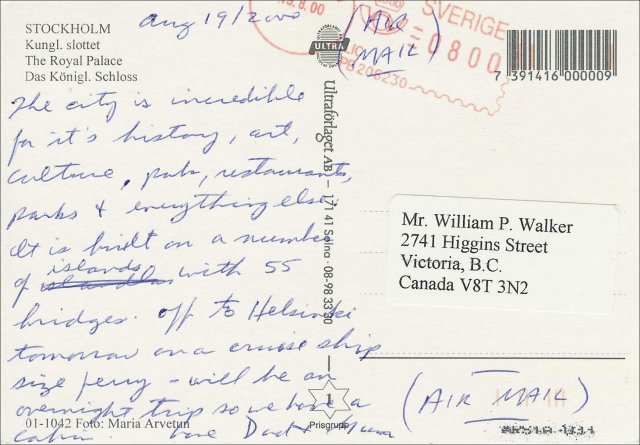 STOCKHOLM
Kungl. slottet
The Royal Palace
Das Königl. Schloss
Aug 19/2000
(AIR
MAIL)
.8.00
SVERIGE
0800
PB206230
ULTRA
7 391416 000009
The city is incredible
for it's history, art,
culture, pubs, restaurants,
parks & everything else.
It is built on a number
of islands with 55
bridges. Off to Helsinki
tomorrow on a cruise ship
size ferry - will be an
overnight trip so we have a
cabin love Dad & Mum
Ultraförlaget AB — 171 41 Solna · 08-98 33 30
Mr. William P. Walker
2741 Higgins Street
Victoria, B.C.
Canada V8T 3N2
1
Prisgrupp
(AIR MAIL)
01-1042 Foto: Maria Arvetun